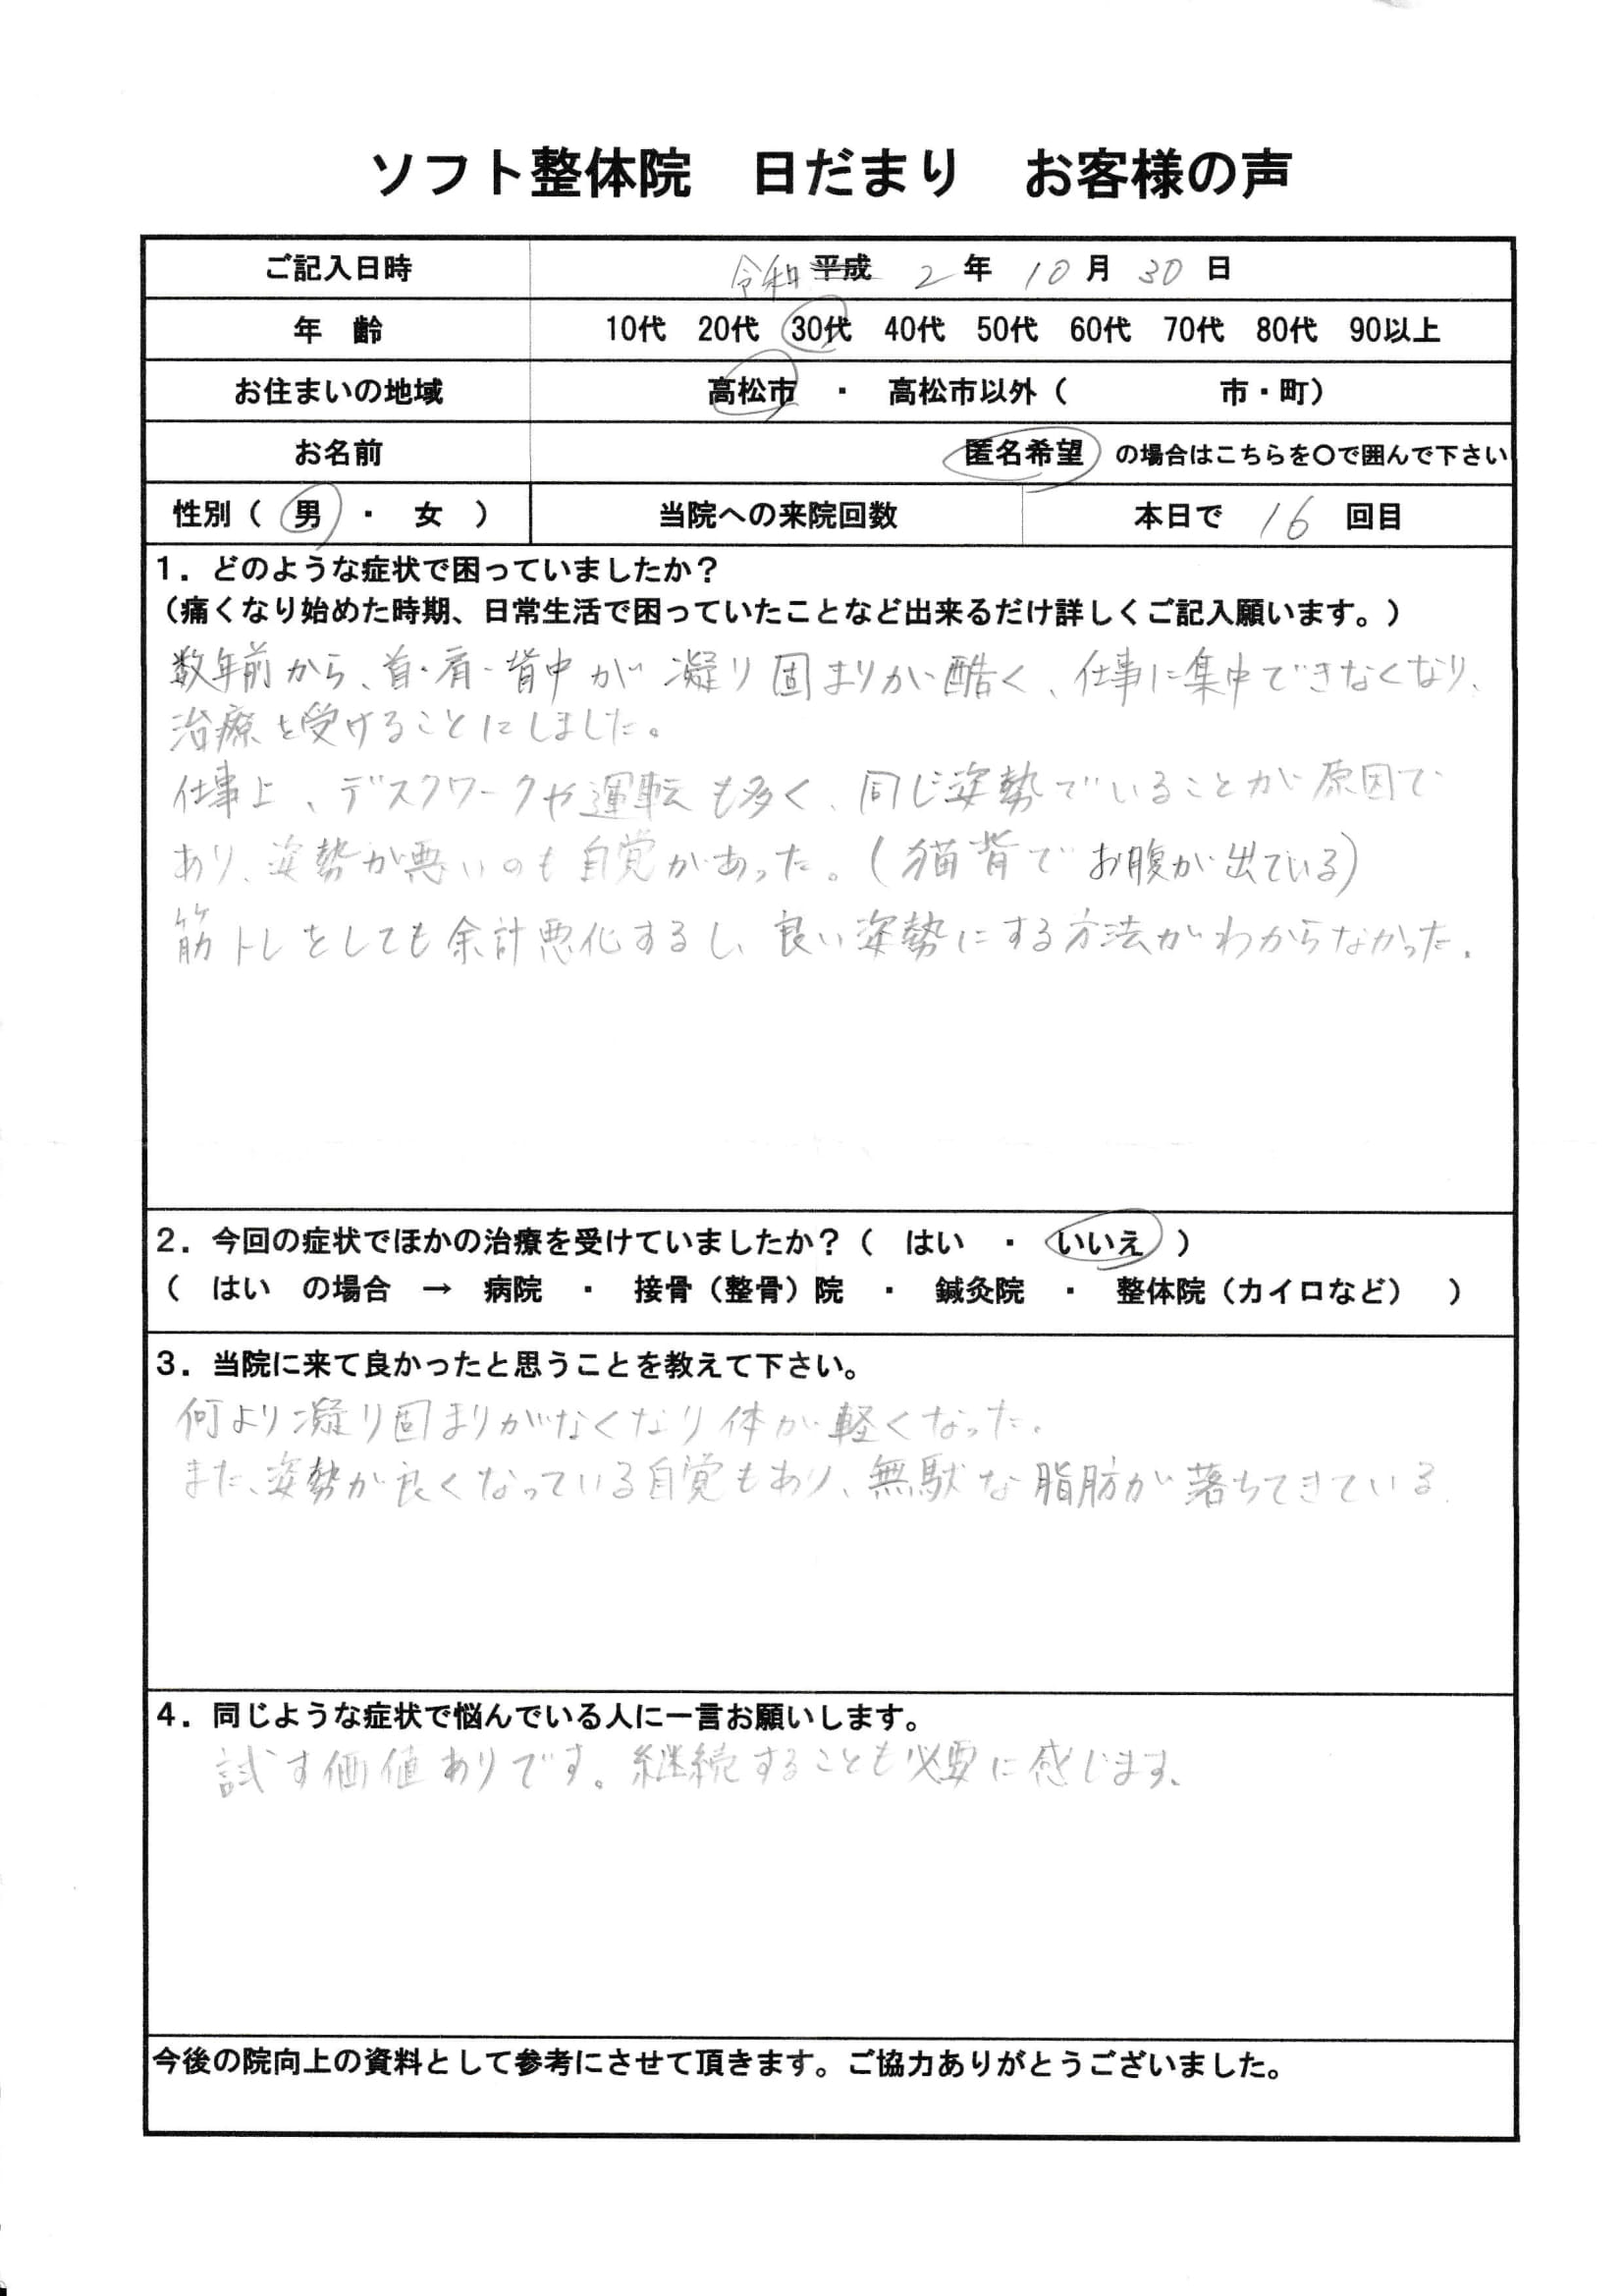 ソフト整体院　日だまり　お客様の声
ご記入日時　令和 平成 2 年 10 月 30 日
年　齢　10代　20代　30代　40代　50代　60代　70代　80代　90以上
お住まいの地域　高松市　・　高松市以外（　　　　　市・町）
お名前　匿名希望 の場合はこちらを〇で囲んで下さい
性別（　男　・　女　）　当院への来院回数　本日で　16　回目
1．どのような症状で困っていましたか？
（痛くなり始めた時期、日常生活で困っていたことなど出来るだけ詳しくご記入願います。）
数年前から、首・肩・背中が凝り固まりが酷く、仕事に集中できなくなり、
治療を受けることにしました。
仕事上、デスクワークや運転も多く、同じ姿勢でいることが原因で
あり、姿勢が悪いのも自覚があった。（猫背でお腹が出ている）
筋トレをしても余計悪化するし、良い姿勢にする方法がわからなかった．
2．今回の症状でほかの治療を受けていましたか？（　はい　・　いいえ　）
（　はい　の場合　→　病院　・　接骨（整骨）院　・　鍼灸院　・　整体院（カイロなど）　）
3．当院に来て良かったと思うことを教えて下さい。
何より凝り固まりがなくなり体が軽くなった。
また、姿勢が良くなっている自覚もあり、無駄な脂肪が落ちてきている．
4．同じような症状で悩んでいる人に一言お願いします。
試す価値ありです。継続することも必要に感じます、
今後の院向上の資料として参考にさせて頂きます。ご協力ありがとうございました。